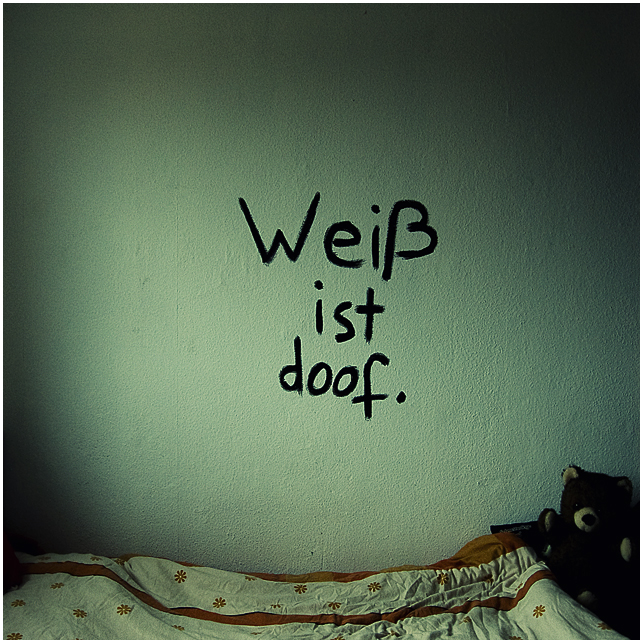 Weiß
ist
doof.